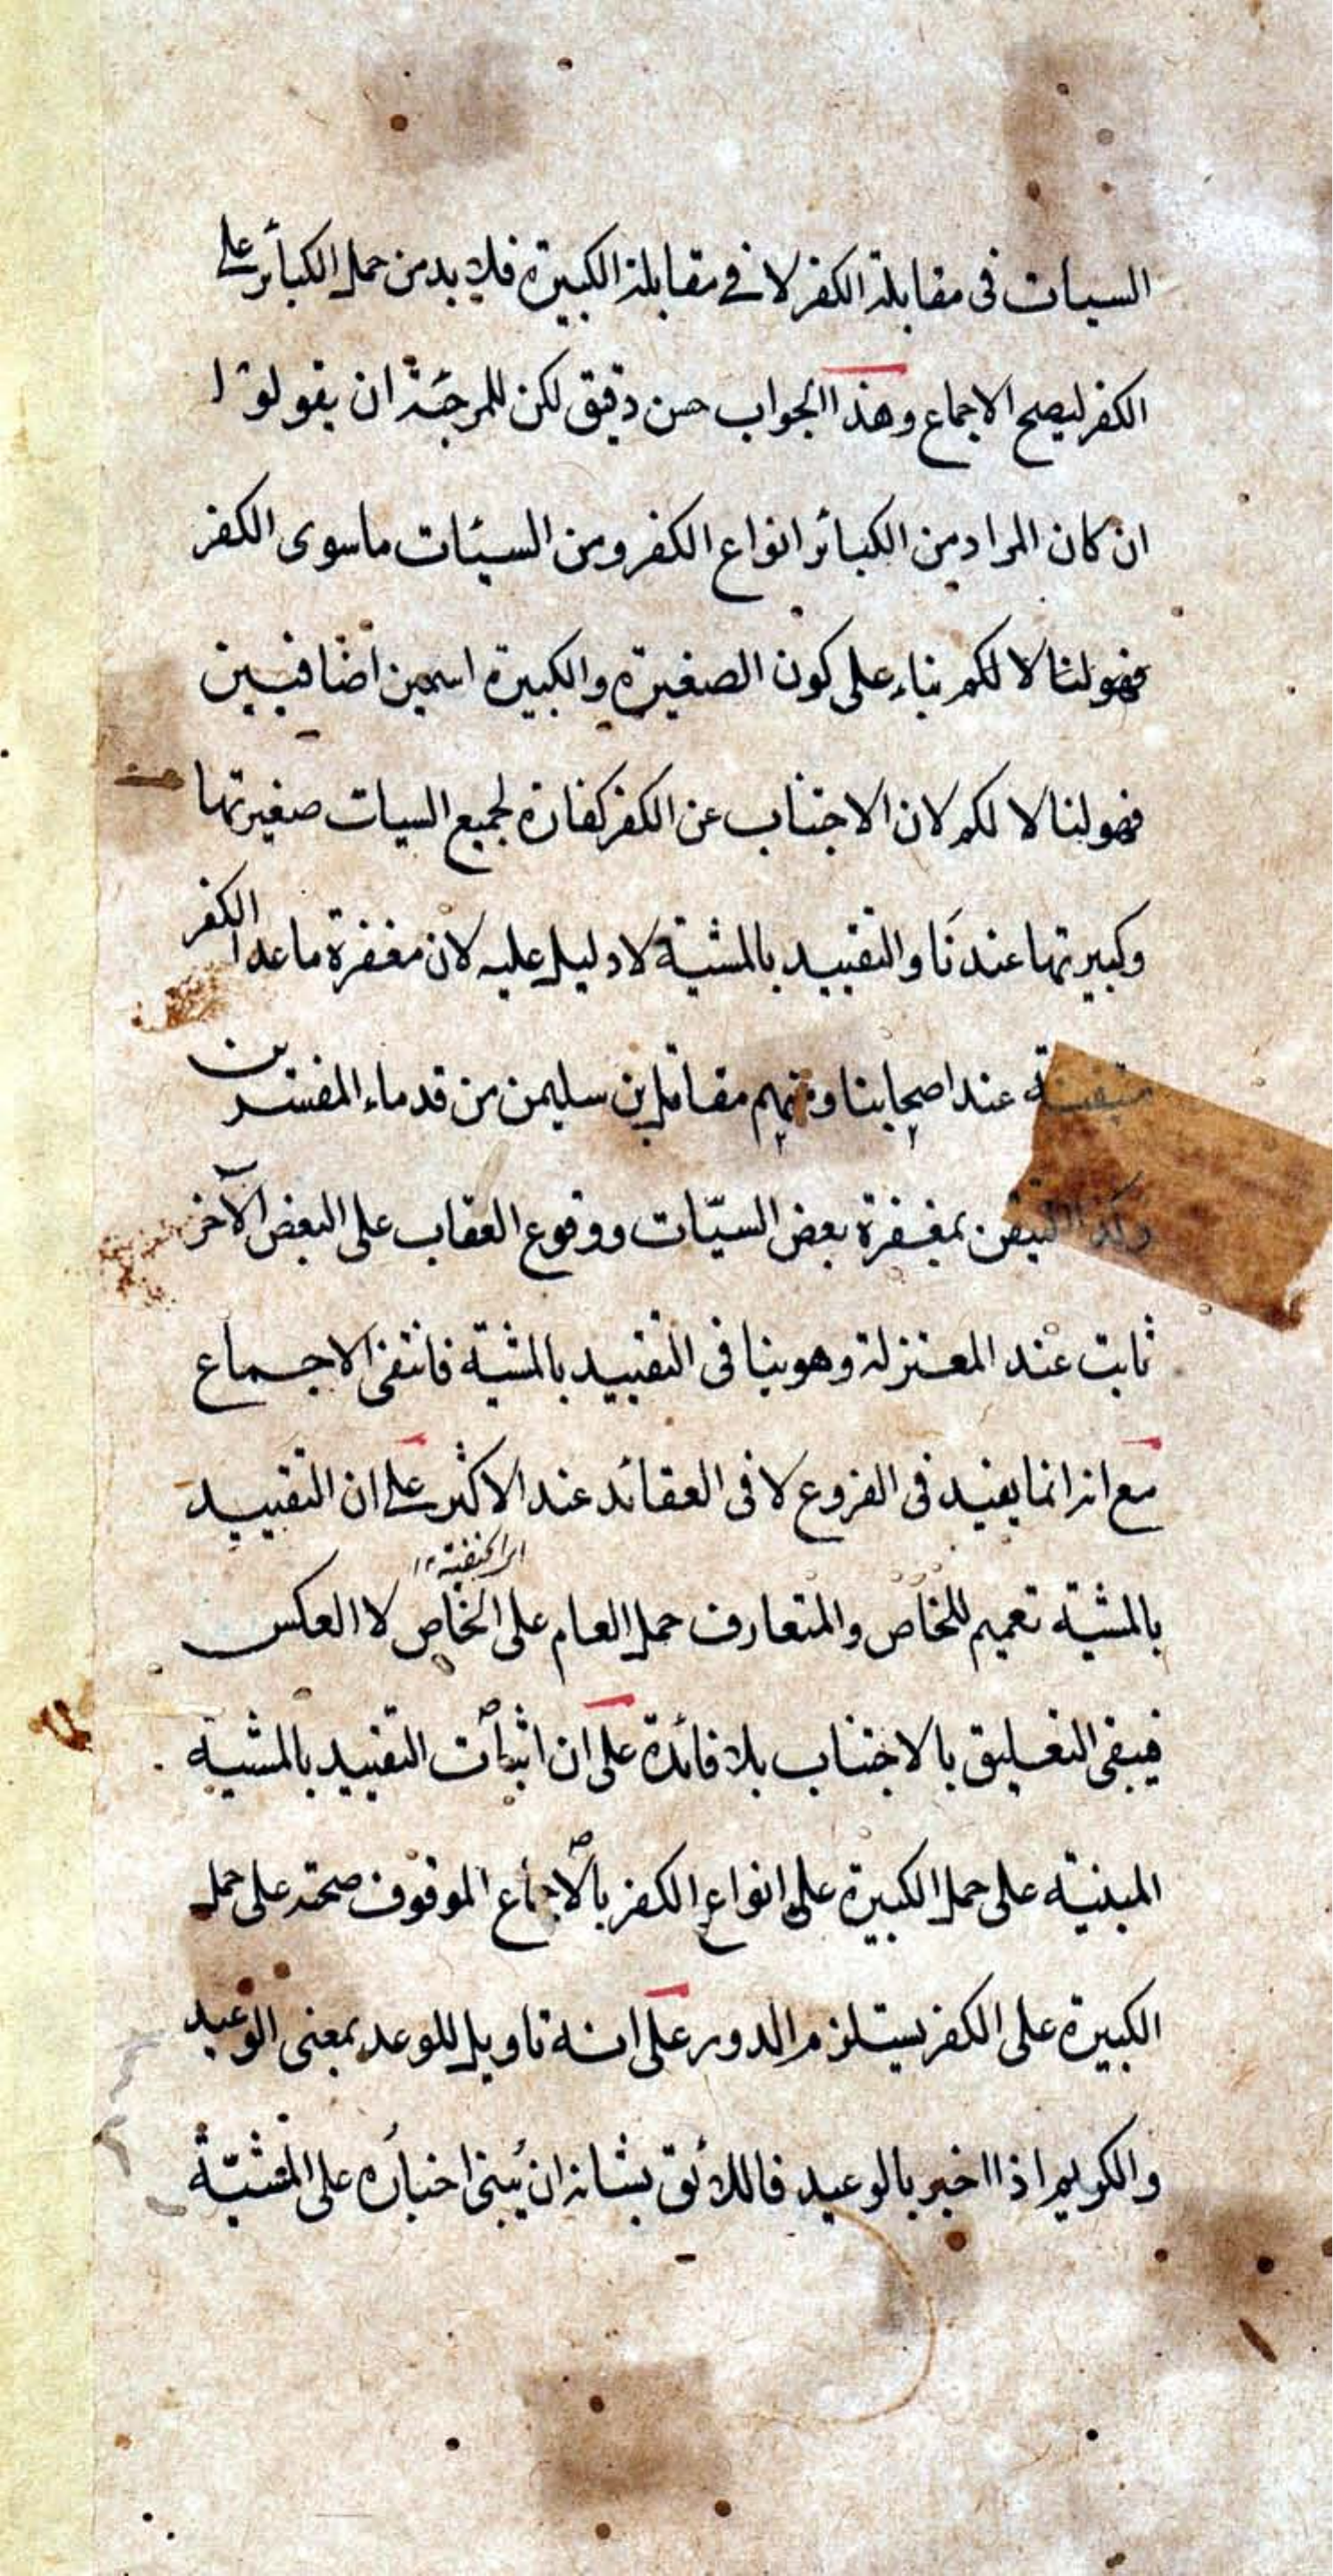 السيات فى مقابلة الكفر لا في مقابلة الكبيرة فلا بد من حمل الكبائر على
الكفر ليصح الاجماع وهذا الجواب حسن دقيق لكن للمرجئة ان يقولوا
ان كان المراد من الكبائر انواع الكفر ومن السيئات ماسوى الكفر
فهو لنا لا لكم بناء على كون الصغيرة والكبيرة اسمين اضافيين
فهو لنا لا لكم لان الاجتناب عن الكفر كفارة لجميع السيات صغيرتها
وكبيرتها عندنا والتقييد بالمشية لا دليل عليه لان مغفرة ماعدا الكفر
متيقنة عند اصحابنا ومنهم مقاتل بن سليمن من قدماء المفسرين
وكذا التيقن بمغفرة بعض السيّات ووقوع العقاب على البعض الآخر
ثابت عند المعتزلة وهو ينافى التقييد بالمشية فانتفى الاجماع
مع انه انما يفيد فى الفروع لا فى العقائد عند الاكثر على ان التقييد
اى الحنفية ١٢
بالمشية تعميم للخاص والمتعارف حمل العام على الخاص لا العكس
فيبقى التعليق بالاجتناب بلا فائدة على ان اثبات التقييد بالمشية
المبنية على حمل الكبيرة على انواع الكفر بالاجماع الموقوف صحته على حمل
الكبيرة على الكفر يستلزم الدور على انه تاويل للوعد بمعنى الوعيد
والكريم اذا اخبر بالوعيد فاللائق بشانه ان يبنى اخباره على المشيّة